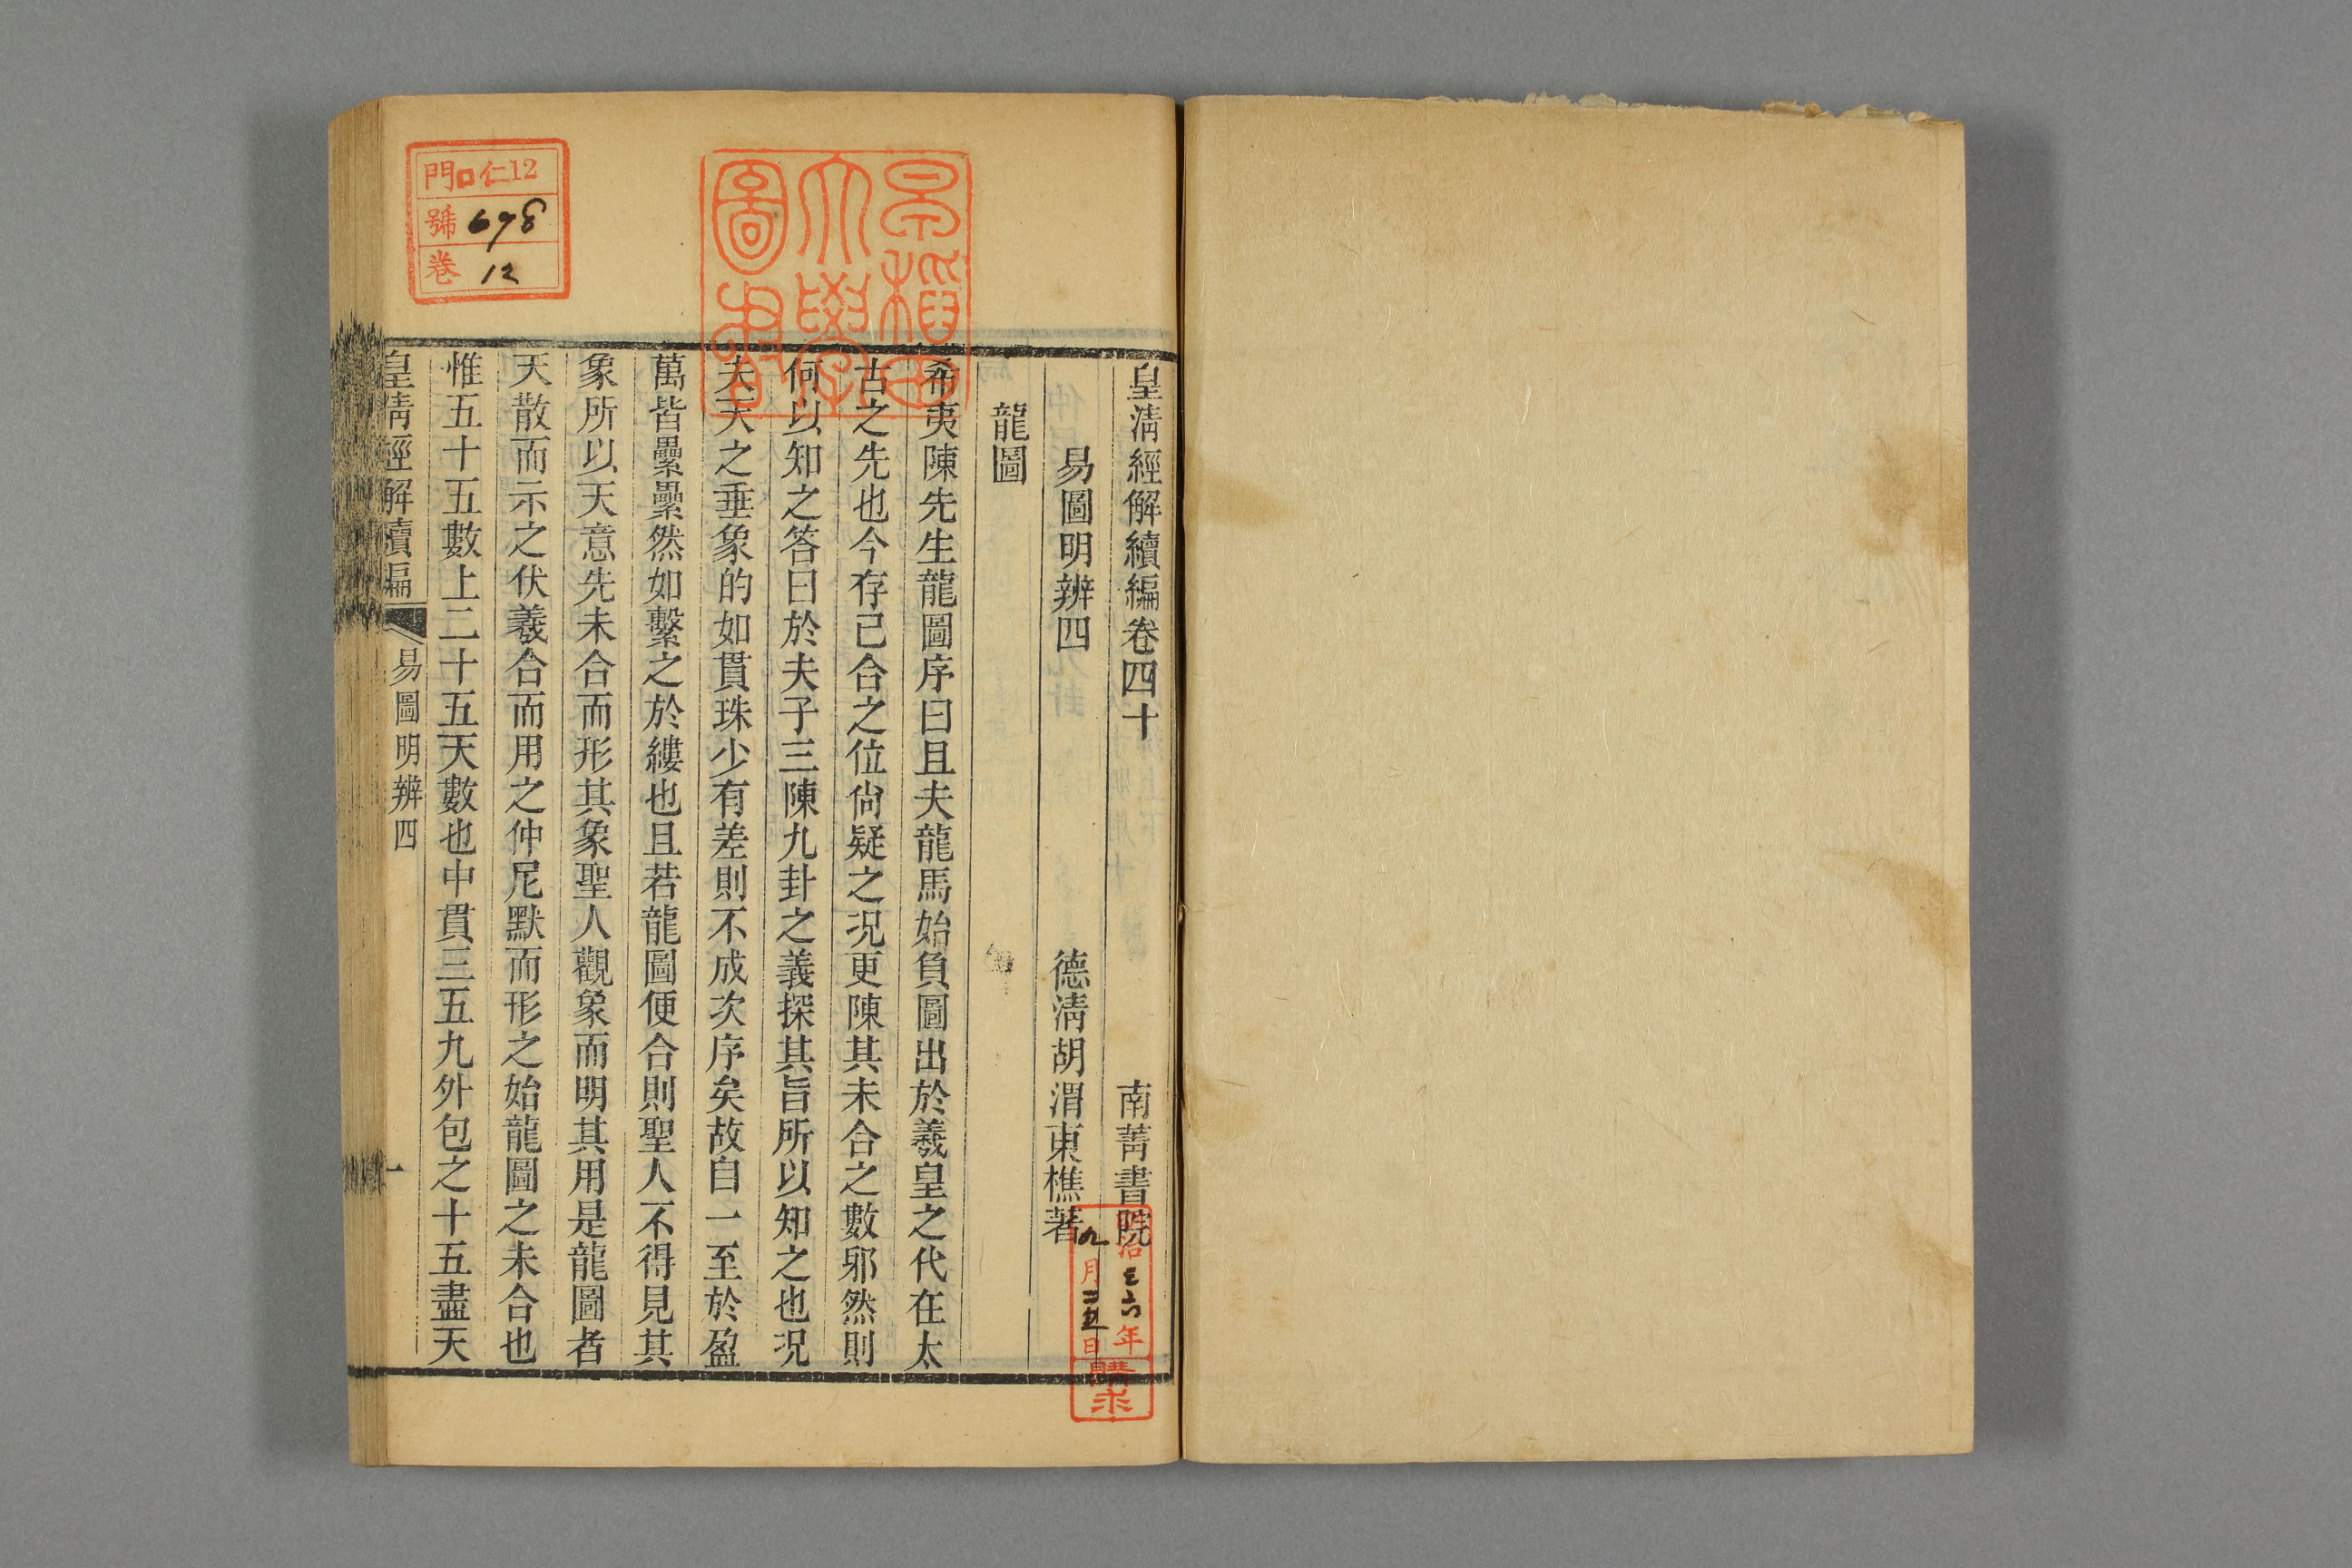 皇清經解續編卷四十
南菁書院
易圖明辨四
德清胡渭東樵著
龍圖
希夷陳先生龍圖序曰且夫龍馬始負圖出於羲皇之代在太
古之先也今存已合之位尙疑之況更陳其未合之數邪然則
何以知之答曰於夫子三陳九卦之義探其旨所以知之也況
夫天之垂象的如貫珠少有差則不成次序矣故自一至於盈
萬皆纍纍然如繫之於縷也且若龍圖便合則聖人不得見其
象所以天意先未合而形其象聖人觀象而明其用是龍圖者
天散而示之伏羲合而用之仲尼默而形之始龍圖之未合也
惟五十五數上二十五天數也中貫三五九外包之十五盡天
皇清經解續編
易圖明辨四
一
門口仁12
號678
卷12
早稻田大學圖書
治三六年
九月二五日
購求